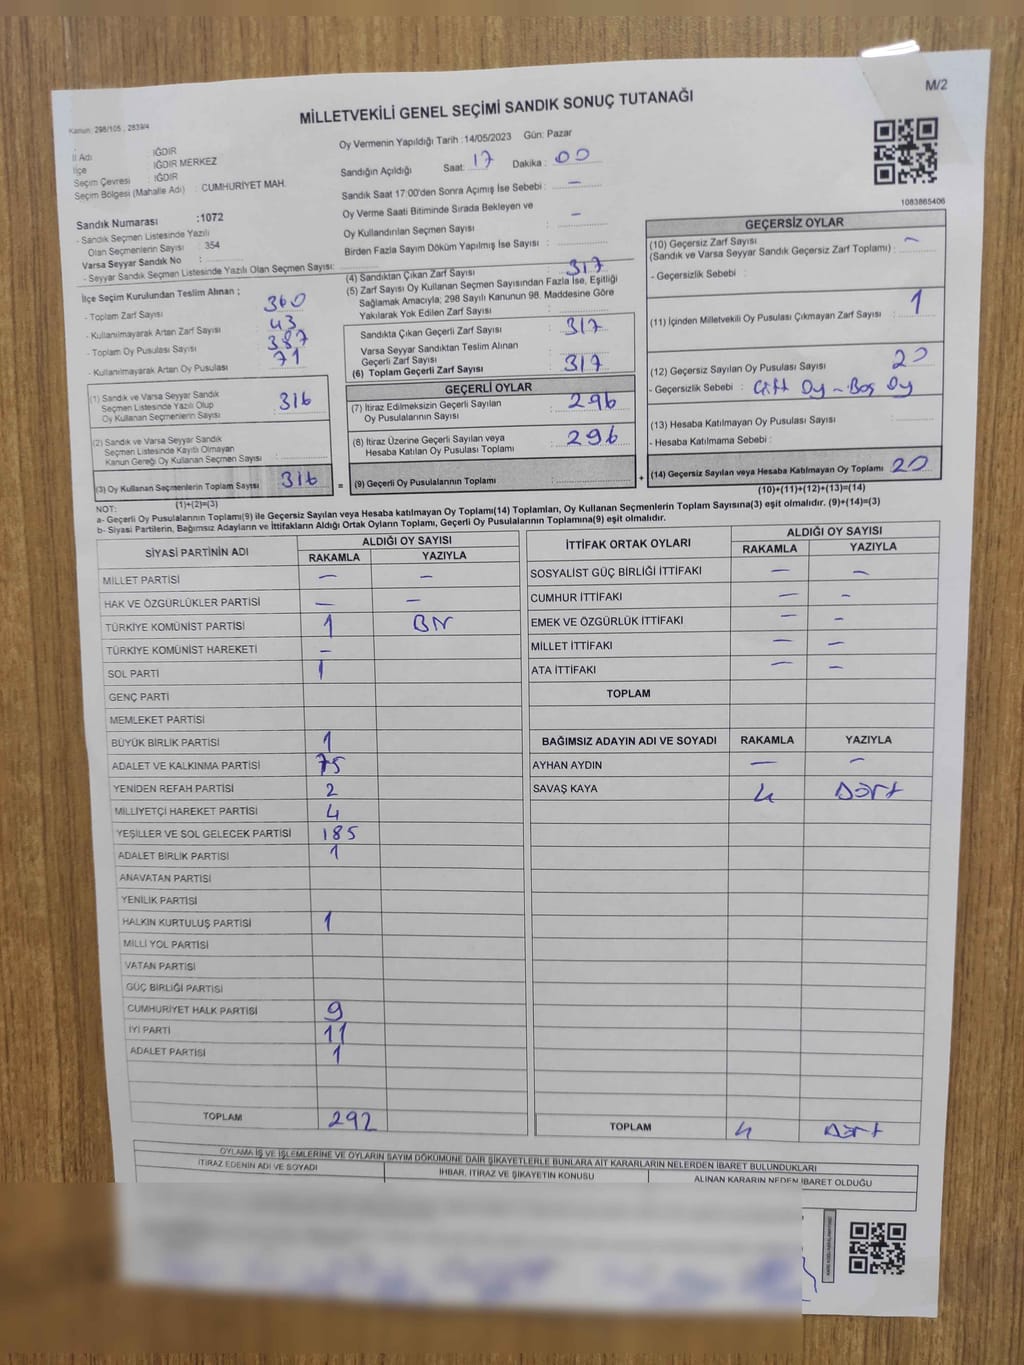 M/2
MİLLETVEKİLİ GENEL SEÇİMİ SANDIK SONUÇ TUTANAĞI
Kanun: 298/105 , 2839/4
İl Adı : IĞDIR
İlçe IĞDIR MERKEZ
Seçim Çevresi : IĞDIR
Seçim Bölgesi (Mahalle Adı) : CUMHURİYET MAH.
Sandık Numarası :1072
- Sandık Seçmen Listesinde Yazılı
Olan Seçmenlerin Sayısı : 354
Varsa Seyyar Sandık No :
- Seyyar Sandık Seçmen Listesinde Yazılı Olan Seçmen Sayısı:
Oy Vermenin Yapıldığı Tarih :14/05/2023 Gün: Pazar
Sandığın Açıldığı Saat: 17 Dakika : 00
Sandık Saat 17:00'den Sonra Açımış İse Sebebi : –
Oy Verme Saati Bitiminde Sırada Bekleyen ve
Oy Kullandırılan Seçmen Sayısı : –
Birden Fazla Sayım Döküm Yapılmış İse Sayısı :
1083865406
İlçe Seçim Kurulundan Teslim Alınan ;
- Toplam Zarf Sayısı 360
- Kullanılmayarak Artan Zarf Sayısı 43
- Toplam Oy Pusulası Sayısı 387
- Kullanılmayarak Artan Oy Pusulası 71
(1) Sandık ve Varsa Seyyar Sandık
Seçmen Listesinde Yazılı Olup
Oy Kullanan Seçmenlerin Sayısı 316
(2) Sandık ve Varsa Seyyar Sandık
Seçmen Listesinde Kayıtlı Olmayan
Kanun Gereği Oy Kullanan Seçmen Sayısı :
(3) Oy Kullanan Seçmenlerin Toplam Sayısı 316
(1)+(2)=(3)
(4) Sandıktan Çıkan Zarf Sayısı : 317
(5) Zarf Sayısı Oy Kullanan Seçmen Sayısından Fazla İse, Eşitliği
Sağlamak Amacıyla; 298 Sayılı Kanunun 98. Maddesine Göre
Yakılarak Yok Edilen Zarf Sayısı :
Sandıkta Çıkan Geçerli Zarf Sayısı : 317
Varsa Seyyar Sandıktan Teslim Alınan
Geçerli Zarf Sayısı
(6) Toplam Geçerli Zarf Sayısı : 317
GEÇERLİ OYLAR
(7) İtiraz Edilmeksizin Geçerli Sayılan
Oy Pusulalarının Sayısı : 296
(8) İtiraz Üzerine Geçerli Sayılan veya
Hesaba Katılan Oy Pusulası Toplamı : 296
= (9) Geçerli Oy Pusulalarının Toplamı : +
GEÇERSİZ OYLAR
(10) Geçersiz Zarf Sayısı
(Sandık ve Varsa Seyyar Sandık Geçersiz Zarf Toplamı) : –
- Geçersizlik Sebebi :
(11) İçinden Milletvekili Oy Pusulası Çıkmayan Zarf Sayısı : 1
(12) Geçersiz Sayılan Oy Pusulası Sayısı : 20
- Geçersizlik Sebebi : Çift Oy – Boş Oy
(13) Hesaba Katılmayan Oy Pusulası Sayısı :
- Hesaba Katılmama Sebebi :
(14) Geçersiz Sayılan veya Hesaba Katılmayan Oy Toplamı 20
(10)+(11)+(12)+(13)=(14)
NOT:
a- Geçerli Oy Pusulalarının Toplamı(9) ile Geçersiz Sayılan veya Hesaba katılmayan Oy Toplamı(14) Toplamları, Oy Kullanan Seçmenlerin Toplam Sayısına(3) eşit olmalıdır. (9)+(14)=(3)
b- Siyasi Partilerin, Bağımsız Adayların ve İttifakların Aldığı Ortak Oyların Toplamı, Geçerli Oy Pusulalarının Toplamına(9) eşit olmalıdır.
SİYASİ PARTİNİN ADI ALDIĞI OY SAYISI
RAKAMLA YAZIYLA
MİLLET PARTİSİ – –
HAK VE ÖZGÜRLÜKLER PARTİSİ – –
TÜRKİYE KOMÜNİST PARTİSİ 1 Bir
TÜRKİYE KOMÜNİST HAREKETİ –
SOL PARTİ 1
GENÇ PARTİ
MEMLEKET PARTİSİ
BÜYÜK BİRLİK PARTİSİ 1
ADALET VE KALKINMA PARTİSİ 75
YENİDEN REFAH PARTİSİ 2
MİLLİYETÇİ HAREKET PARTİSİ 4
YEŞİLLER VE SOL GELECEK PARTİSİ 185
ADALET BİRLİK PARTİSİ 1
ANAVATAN PARTİSİ
YENİLİK PARTİSİ
HALKIN KURTULUŞ PARTİSİ 1
MİLLİ YOL PARTİSİ
VATAN PARTİSİ
GÜÇ BİRLİĞİ PARTİSİ
CUMHURİYET HALK PARTİSİ 9
İYİ PARTİ 11
ADALET PARTİSİ 1
TOPLAM 292
İTTİFAK ORTAK OYLARI ALDIĞI OY SAYISI
RAKAMLA YAZIYLA
SOSYALİST GÜÇ BİRLİĞİ İTTİFAKI – –
CUMHUR İTTİFAKI – –
EMEK VE ÖZGÜRLÜK İTTİFAKI – –
MİLLET İTTİFAKI – –
ATA İTTİFAKI – –
TOPLAM
BAĞIMSIZ ADAYIN ADI VE SOYADI RAKAMLA YAZIYLA
AYHAN AYDIN – –
SAVAŞ KAYA 4 Dört
TOPLAM 4 Dört
OYLAMA İŞ VE İŞLEMLERİNE VE OYLARIN SAYIM DÖKÜMÜNE DAİR ŞİKAYETLERLE BUNLARA AİT KARARLARIN NELERDEN İBARET BULUNDUKLARI
İTİRAZ EDENİN ADI VE SOYADI İHBAR, İTİRAZ VE ŞİKAYETİN KONUSU ALINAN KARARIN NEDEN İBARET OLDUĞU